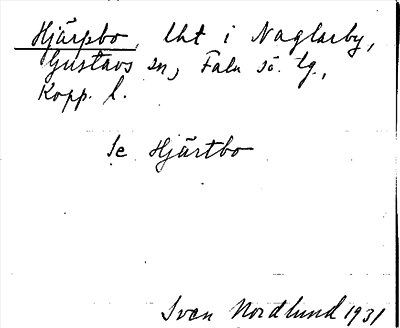 Hjärpbo, lht i Naglarby,
Gustavs sn, Falu sö. tg.,
Kopp. l.
Se Hjärtbo
Sven Nordlund 1931